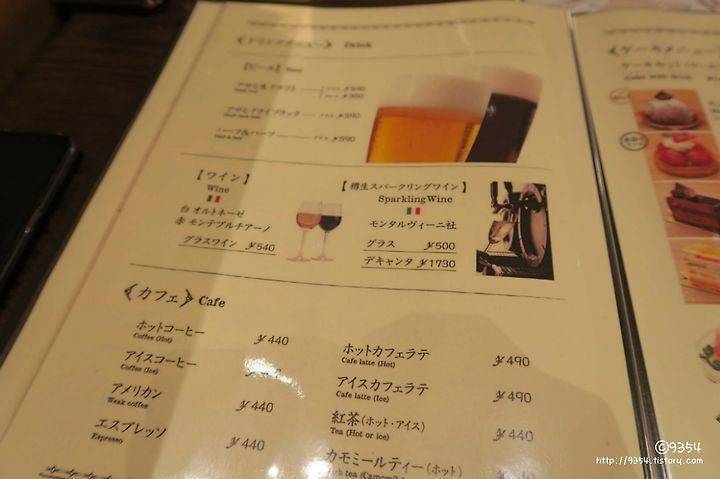 ドリンクメニュー Drink
【ビール】 Beer
アサヒ生ドラフト グラス ¥590
¥350
アサヒドライブラック グラス ¥590
ハーフ&ハーフ グラス ¥590
【ワイン】
Wine
白 オルトネーゼ
赤 モンテプルチアーノ
グラスワイン ¥540
【樽生スパークリングワイン】
Sparkling Wine
モンタルヴィーニ社
グラス ¥500
デキャンタ ¥1730
カフェ Cafe
ホットコーヒー ¥440
Coffee (Hot)
アイスコーヒー
Coffee (Ice)
アメリカン ¥440
Weak coffee
エスプレッソ ¥440
Espresso
ホットカフェラテ ¥490
Cafe latte (Hot)
アイスカフェラテ ¥490
Cafe latte (Ice)
紅茶(ホット・アイス) ¥440
Tea (Hot or ice)
カモミールティー(ホット)
ケーキメニュー
ケーキセット
Cake with drink
©9354
http://9354.tistory.com